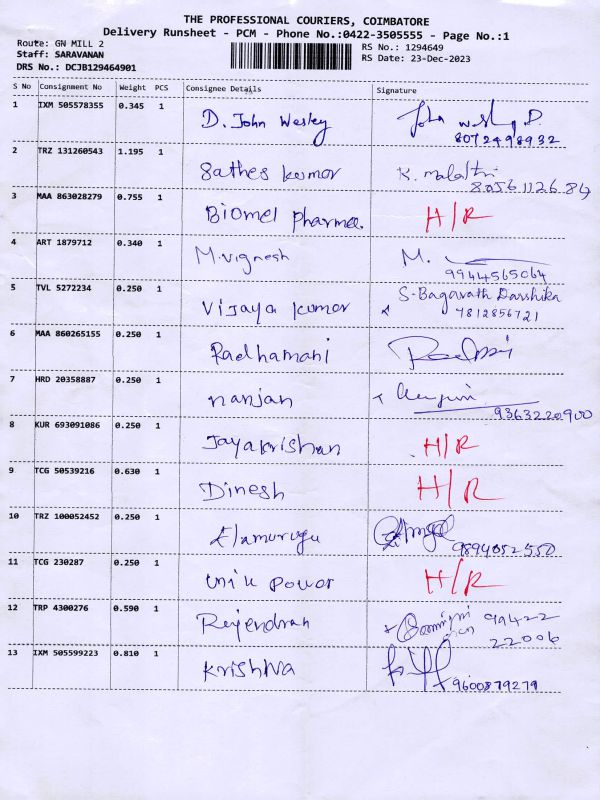 THE PROFESSIONAL COURIERS, COIMBATORE
Delivery Runsheet - PCM - Phone No.:0422-3505555 - Page No.:1
Route: GN MILL 2
RS No.: 1294649
Staff: SARAVANAN
RS Date: 23-Dec-2023
DRS No.: DCJB129464901
S No Consignment No Weight PCS Consignee Details Signature
1 IXM 505578355 0.345 1 D. John Wesley John D.
8072498932
2 TRZ 131260543 1.195 1 Sathes kumar K. malathi
8056112684
3 MAA 863028279 0.755 1 Biomel pharma H/R
4 ART 1879712 0.340 1 M. vignesh M.
9944565064
5 TVL 5272234 0.250 1 Vijaya kumar S. Bagavath Darshika
7812856721
6 MAA 860265155 0.250 1 Radhamani
7 HRD 20358887 0.250 1 nanjan
9363220900
8 KUR 693091086 0.250 1 Jayakrishan H/R
9 TCG 50539216 0.630 1 Dinesh H/R
10 TRZ 100052452 0.250 1 Elamurugu
9894052550
11 TCG 230287 0.250 1 unik power H/R
12 TRP 4300276 0.590 1 Rejendran 99422
22006
13 IXM 505599223 0.810 1 Krishna
9600879279